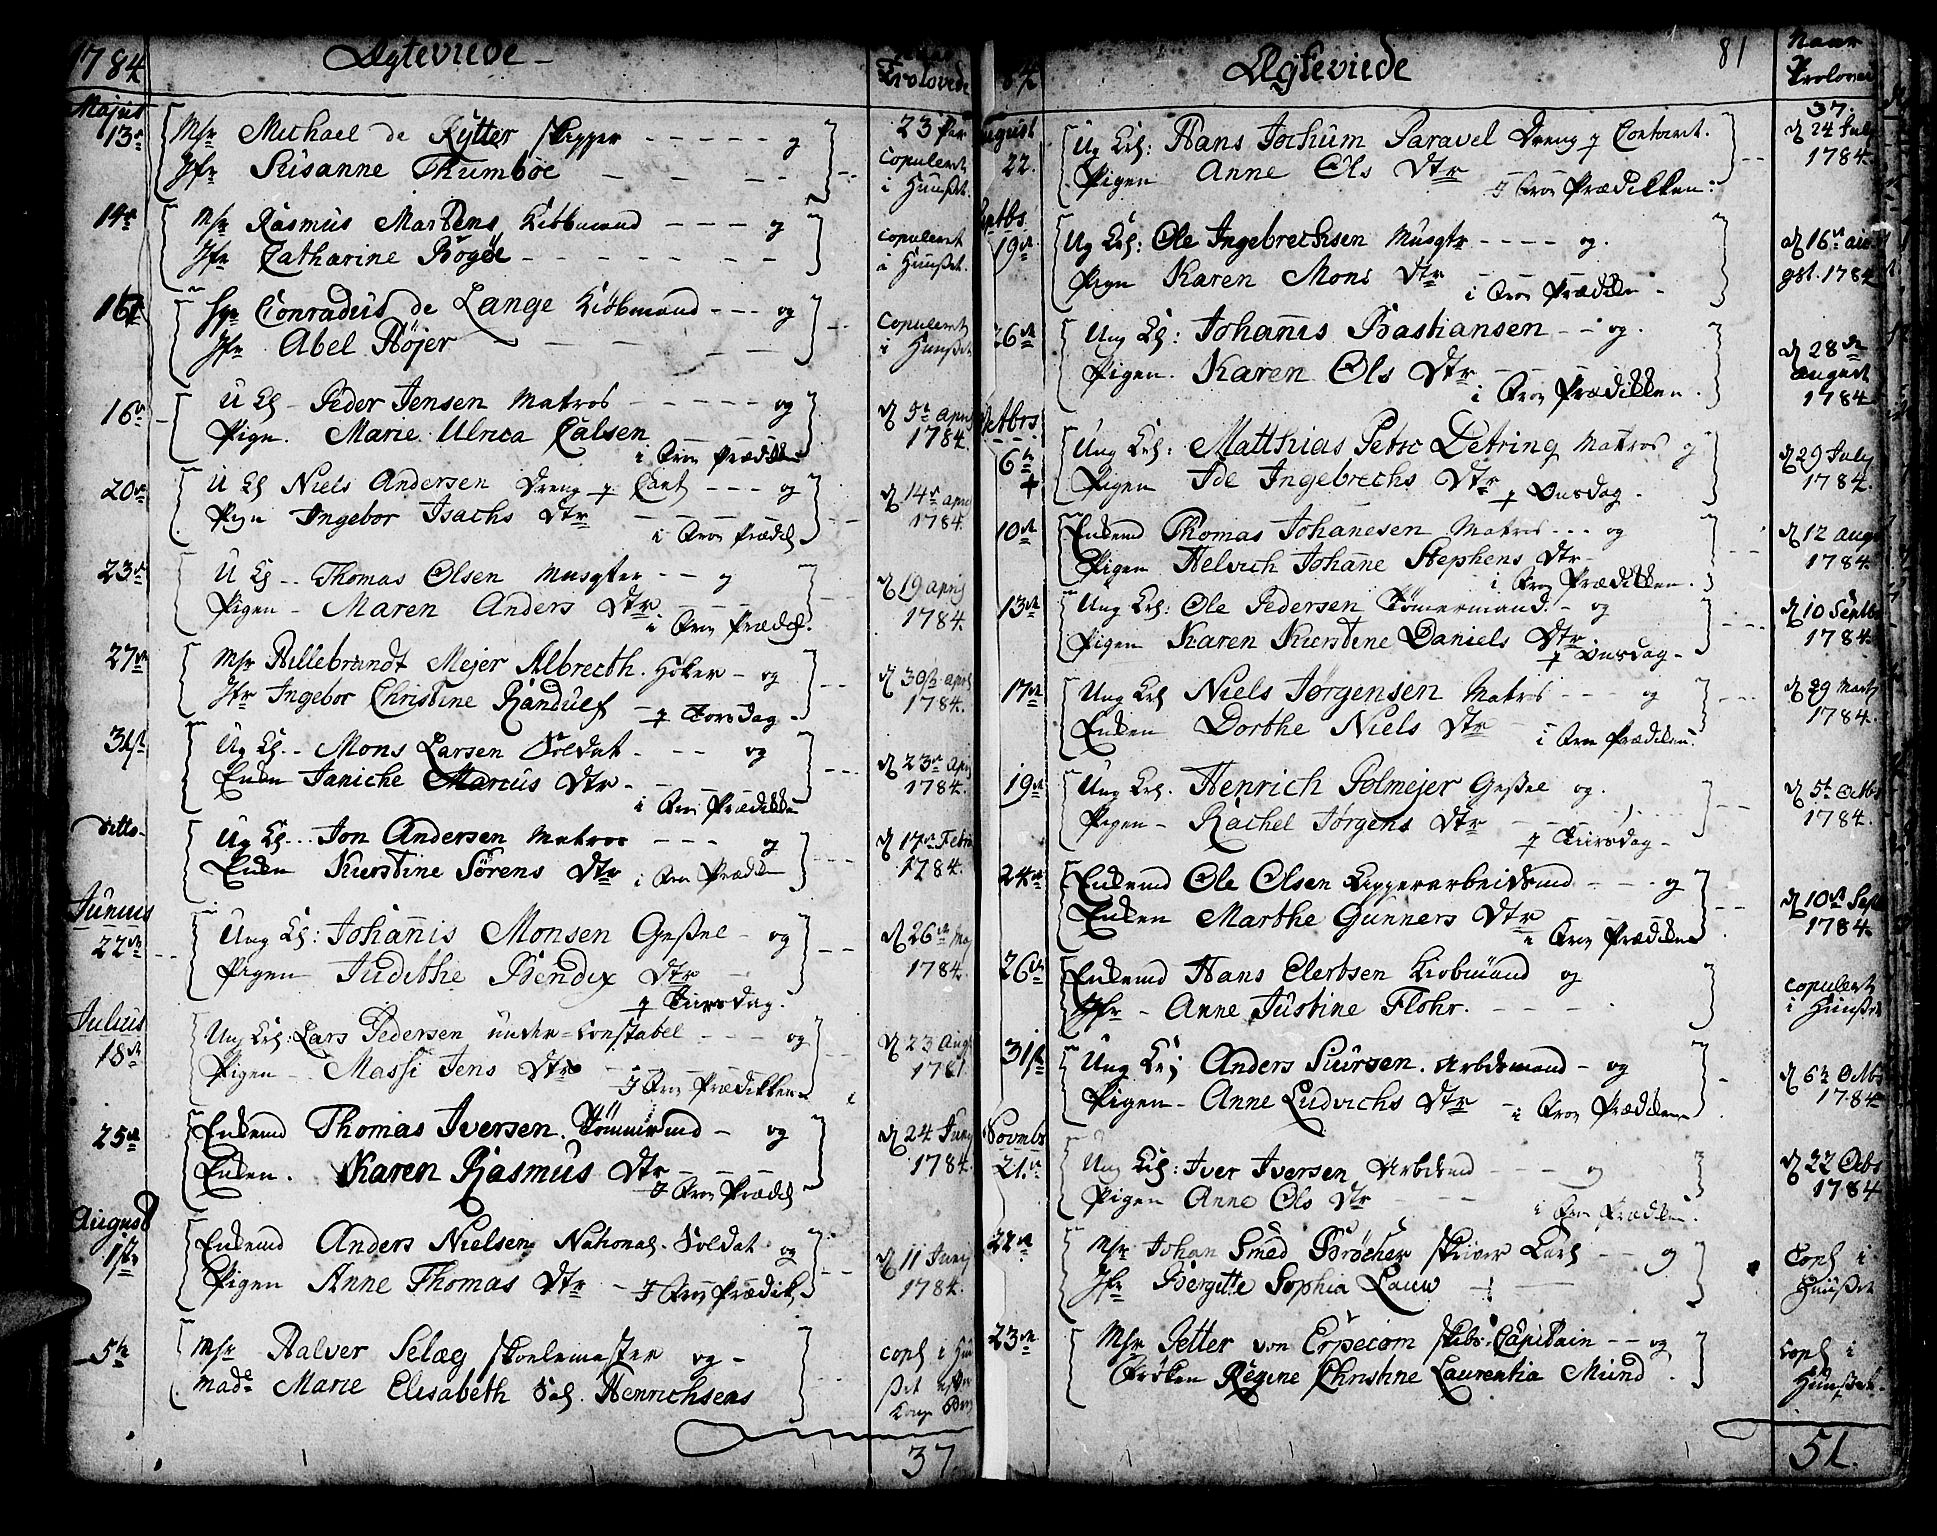 1784 Ægteviede
Trolovede
Majus
13de Msr Michael de Rÿtter skipper - - - - - og
Jfr Susanne Thumböe - - - -
23 Par
Copuleret
i Huuset.
14de Msr Rasmus Martens Kibbmand - - - - og
Jfr Catharine Bøgøe - - - - - - -
Copuleret
i Huuset.
15de Sgr Conradus de Lange Kiöbmand - - - og
Jfr Abel Höjer - - - -
Copuleret
i Huuset
16de U K - Peder Jensen Matros - - - - - og
Pigen. Marie Ulrica Calsen
i Fro Prædiken
d 5te April
1784.
20de U K Niels Andersen Dreng p Cont - - - og
Pign Ingebor Isachs Dtr - - - -
i Fro Prædik
d 14de april
1784.
23de U K - - Thomas Olsen Musqter - - og
Pigen - Maren Anders Dtr - - -
i Fro Prædik.
d 19 april
1784.
27de Msr Hillebrandt Mejer Albrecth. Höker - og
Jfr Ingebor Christine Randulf - p Torsdag -
d 30te april
1784.
31st Ug K. - Mons Larsen Soldat - - - og
Enken Janiche Marcus Dtr -
i Fro Prædiken
d 23de April
1784.
ditto - Ug K - - Jon Andersen Matros - - - og
Enken Kurstine Sörens Dtr i Fro Prædiken
d 17de Febru
1784.
Junius
22de Ung K: Johannis Monsen Geßel - og
Pigen Judithe Bendix Dtr -
p Tiirsdag.
d 26de Maj
1784.
Julius
18de Ung K: Lars Pedersen under=Constabel - - - og
Pigen - Massi Jens Dtr -
I Fro Prædikken
d 23 Augs
1781.
25de Enkemd Thomas Iversen. Tömmermd - og
Enken. Karen Rasmus Dtr - - -
I Fro Prædik
d 24 Juny
1784.
August
1ste Enkemd Anders Nielsen National. Soldat og
Pigen Anne Thomas Dtr - I Fro Prædik
d 11 Juny
1784.
5te Msr Halver Selæg skolemester og -
Made Marie Elisabeth Sal. Henrichsens
Copl i
37

84 Ægteviede 81
Naar
Trolovede
37.
August
22. Ug K: Hans Jochum Paravel Dreng p Contract.
Pigen Anne Ols Dtr I Fro Prædikken:
d 24 July
1784.
Septbs
19de Ug K: Ole Ingebrechtsen Musqtr - - - - og.
Pign Karen Mons Dtr - - -
i Fro Prædike -
d 16de au
gst. 1784
26de Ung K: Johannis Bastiansen - - og.
Pigen. Karen Ols Dtr - - - -
i Fro Prædikken.
d 28de
august
1784
Octbrs
6te Ung K: Matthias Petro Detring Matros og
Pigen Ide Ingebrechs Dtr p Onsdag.
d 29 July
1784.
10de Enkemd Thomas Johanesen Matros - - - og
Pigen Helvich Johane Stephens Dtr -
i Fro Prædikken.
d 12 augs
1784.
13de Ung K: Ole Pedersen Tömermand. - og
Pigen Karen Kurstine Daniels Dtr
p Onsdag -
d 10 Septbr
1784.
17de Ung K Niels Jörgensen Matros - - - og
Enken Dorthe Niels Dtr - -
i Fro Prædiken.
d 29 Marty
1784.
19de Ung K. Henrich Polmejer Geßel og.
Pigen - Rachel Jörgens Dtr - - -
p Tiirsdag -
d 5te Octbs
1784.
24de Enkemd Ole Olsen Liggerarbeidsmd - - - og
Enken Marthe Gunners Dtr
i Fro Prædiken
d 10de Sept
1784.
26de Enkemd Hans Clertsen Kiobmand og
Jfr - Anne Justine Flohr. - - - -
Copuleret
i Huuset
31te Ung K: Anders Siursen. Arbdsmand - og
Pigen - Anne Ludvichs Dtr - i Fro Prædiken
d 6te Octbs
1784
Novmbr
21de Ung K: Iver Iversen Arbdsmd - - - - og
Pigen Anne Ols Dtr - - -
i Fro Prædiken.
d 22 Octbs
1784
22de Msr Johan Smed Bröcher skriver Karl - - og
Jfr Bergitte Sophia Lauw -
Copl i
Huuset
23de Msr Petter von Erpecom skibs Capitain - - og
Fröken Regine Christine Laurentia Mund.
Copl i
Huuset.
51.